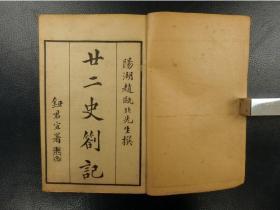 陽湖趙甌北先生撰
廿二史劄記
鈕君宜署